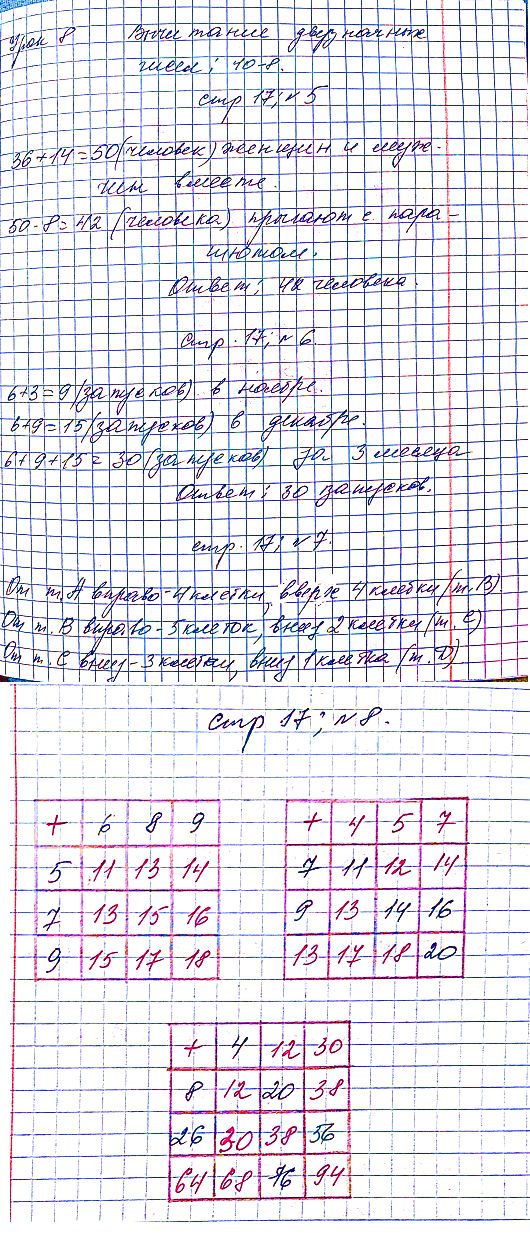 Урок 8 Вычитание двузначных
чисел; 40-8.
стр 17; №5
36+14=50(человек) женщин и муж-
чин вместе.
50-8=42 (человека) прыгают с пара-
шютом.
Ответ; 42 человека.
стр. 17; №6
6+3=9(запусков) в ноябре.
6+9=15(запусков) в декабре.
6+9+15=30(запусков) за 3 месяца
Ответ: 30 запусков.
стр. 17; №7.
От т.А вправо-4клетки, вверх 4клетки(т.В).
От т.В вправо-5клеток, вниз 2клетки(т.С)
От т.С вниз-3клетки, вниз 1клетка(т.D)
стр 17; №8.
+ 6 8 9
5 11 13 14
7 13 15 16
9 15 17 18
+ 4 5 7
7 11 12 14
9 13 14 16
13 17 18 20
+ 4 12 30
8 12 20 38
26 30 38 56
64 68 76 94